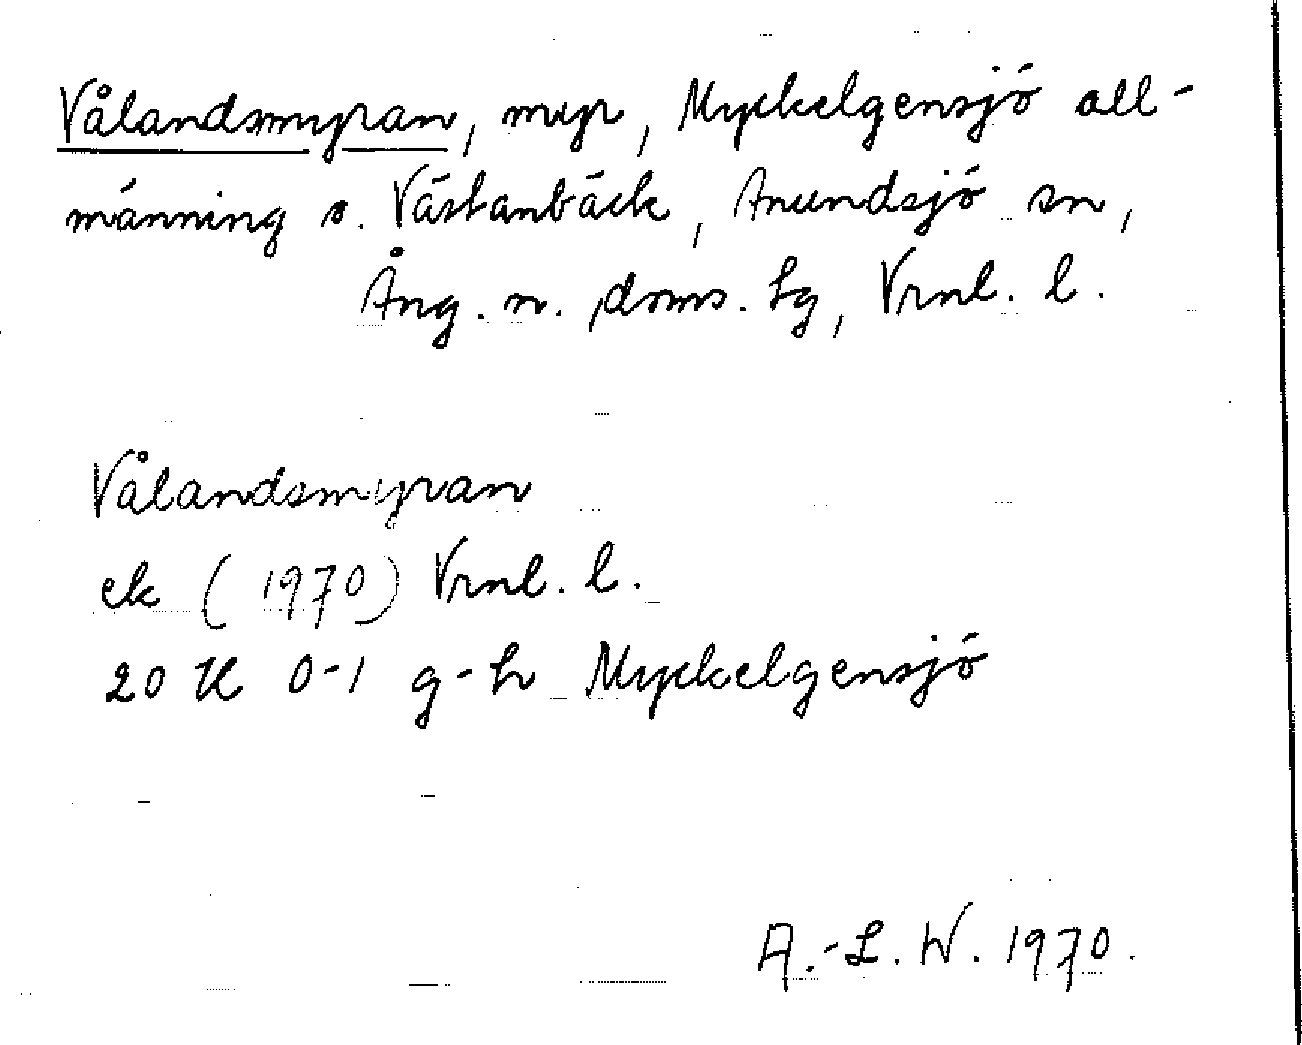 Vålandsmyran, myr, Myckelgensjö all-
männing s. Västanbäck, Anundsjö sn,
Ång. n. doms. hg, Vrnl. l.
Vålandsmyran
ek (1970) Vrnl. l.
20 H 0-1 g-h Myckelgensjö
A.-L. W. 1970.